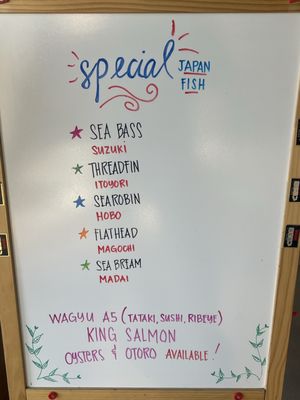 special JAPAN
FISH
SEA BASS
SUZUKI
THREADFIN
ITOYORI
SEAROBIN
HOBO
FLATHEAD
MAGOCHI
SEA BREAM
MADAI
WAGYU A5 (TATAKI, SUSHI, RIBEYE)
KING SALMON
OYSTERS & OTORO AVAILABLE!